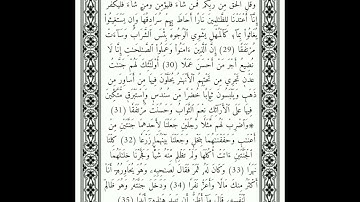 وَقُلِ ٱلْحَقُّ مِن رَّبِّكُمْ فَمَن شَآءَ فَلْيُؤْمِن وَمَن شَآءَ فَلْيَكْفُرْ
إِنَّآ أَعْتَدْنَا لِلظَّـٰلِمِينَ نَارًا أَحَاطَ بِهِمْ سُرَادِقُهَا وَإِن يَسْتَغِيثُوا۟
يُغَاثُوا۟ بِمَآءٍ كَٱلْمُهْلِ يَشْوِى ٱلْوُجُوهَ بِئْسَ ٱلشَّرَابُ وَسَآءَتْ
مُرْتَفَقًا (29) إِنَّ ٱلَّذِينَ ءَامَنُوا۟ وَعَمِلُوا۟ ٱلصَّـٰلِحَـٰتِ إِنَّا لَا
نُضِيعُ أَجْرَ مَنْ أَحْسَنَ عَمَلًا (30) أُو۟لَـٰٓئِكَ لَهُمْ جَنَّـٰتُ
عَدْنٍ تَجْرِى مِن تَحْتِهِمُ ٱلْأَنْهَـٰرُ يُحَلَّوْنَ فِيهَا مِنْ أَسَاوِرَ مِن
ذَهَبٍ وَيَلْبَسُونَ ثِيَابًا خُضْرًا مِّن سُندُسٍ وَإِسْتَبْرَقٍ مُّتَّكِـِٔينَ
فِيهَا عَلَى ٱلْأَرَآئِكِ نِعْمَ ٱلثَّوَابُ وَحَسُنَتْ مُرْتَفَقًا (31)
۞وَٱضْرِبْ لَهُم مَّثَلًا رَّجُلَيْنِ جَعَلْنَا لِأَحَدِهِمَا جَنَّتَيْنِ مِنْ
أَعْنَـٰبٍ وَحَفَفْنَـٰهُمَا بِنَخْلٍ وَجَعَلْنَا بَيْنَهُمَا زَرْعًا (32) كِلْتَا
ٱلْجَنَّتَيْنِ ءَاتَتْ أُكُلَهَا وَلَمْ تَظْلِم مِّنْهُ شَيْـًٔا وَفَجَّرْنَا خِلَـٰلَهُمَا
نَهَرًا (33) وَكَانَ لَهُۥ ثَمَرٌ فَقَالَ لِصَـٰحِبِهِۦ وَهُوَ يُحَاوِرُهُۥٓ أَنَا۠
أَكْثَرُ مِنكَ مَالًا وَأَعَزُّ نَفَرًا (34) وَدَخَلَ جَنَّتَهُۥ وَهُوَ ظَالِمٌ
لِّنَفْسِهِۦ قَالَ مَآ أَظُنُّ أَن تَبِيدَ هَـٰذِهِۦٓ أَبَدًا (35)